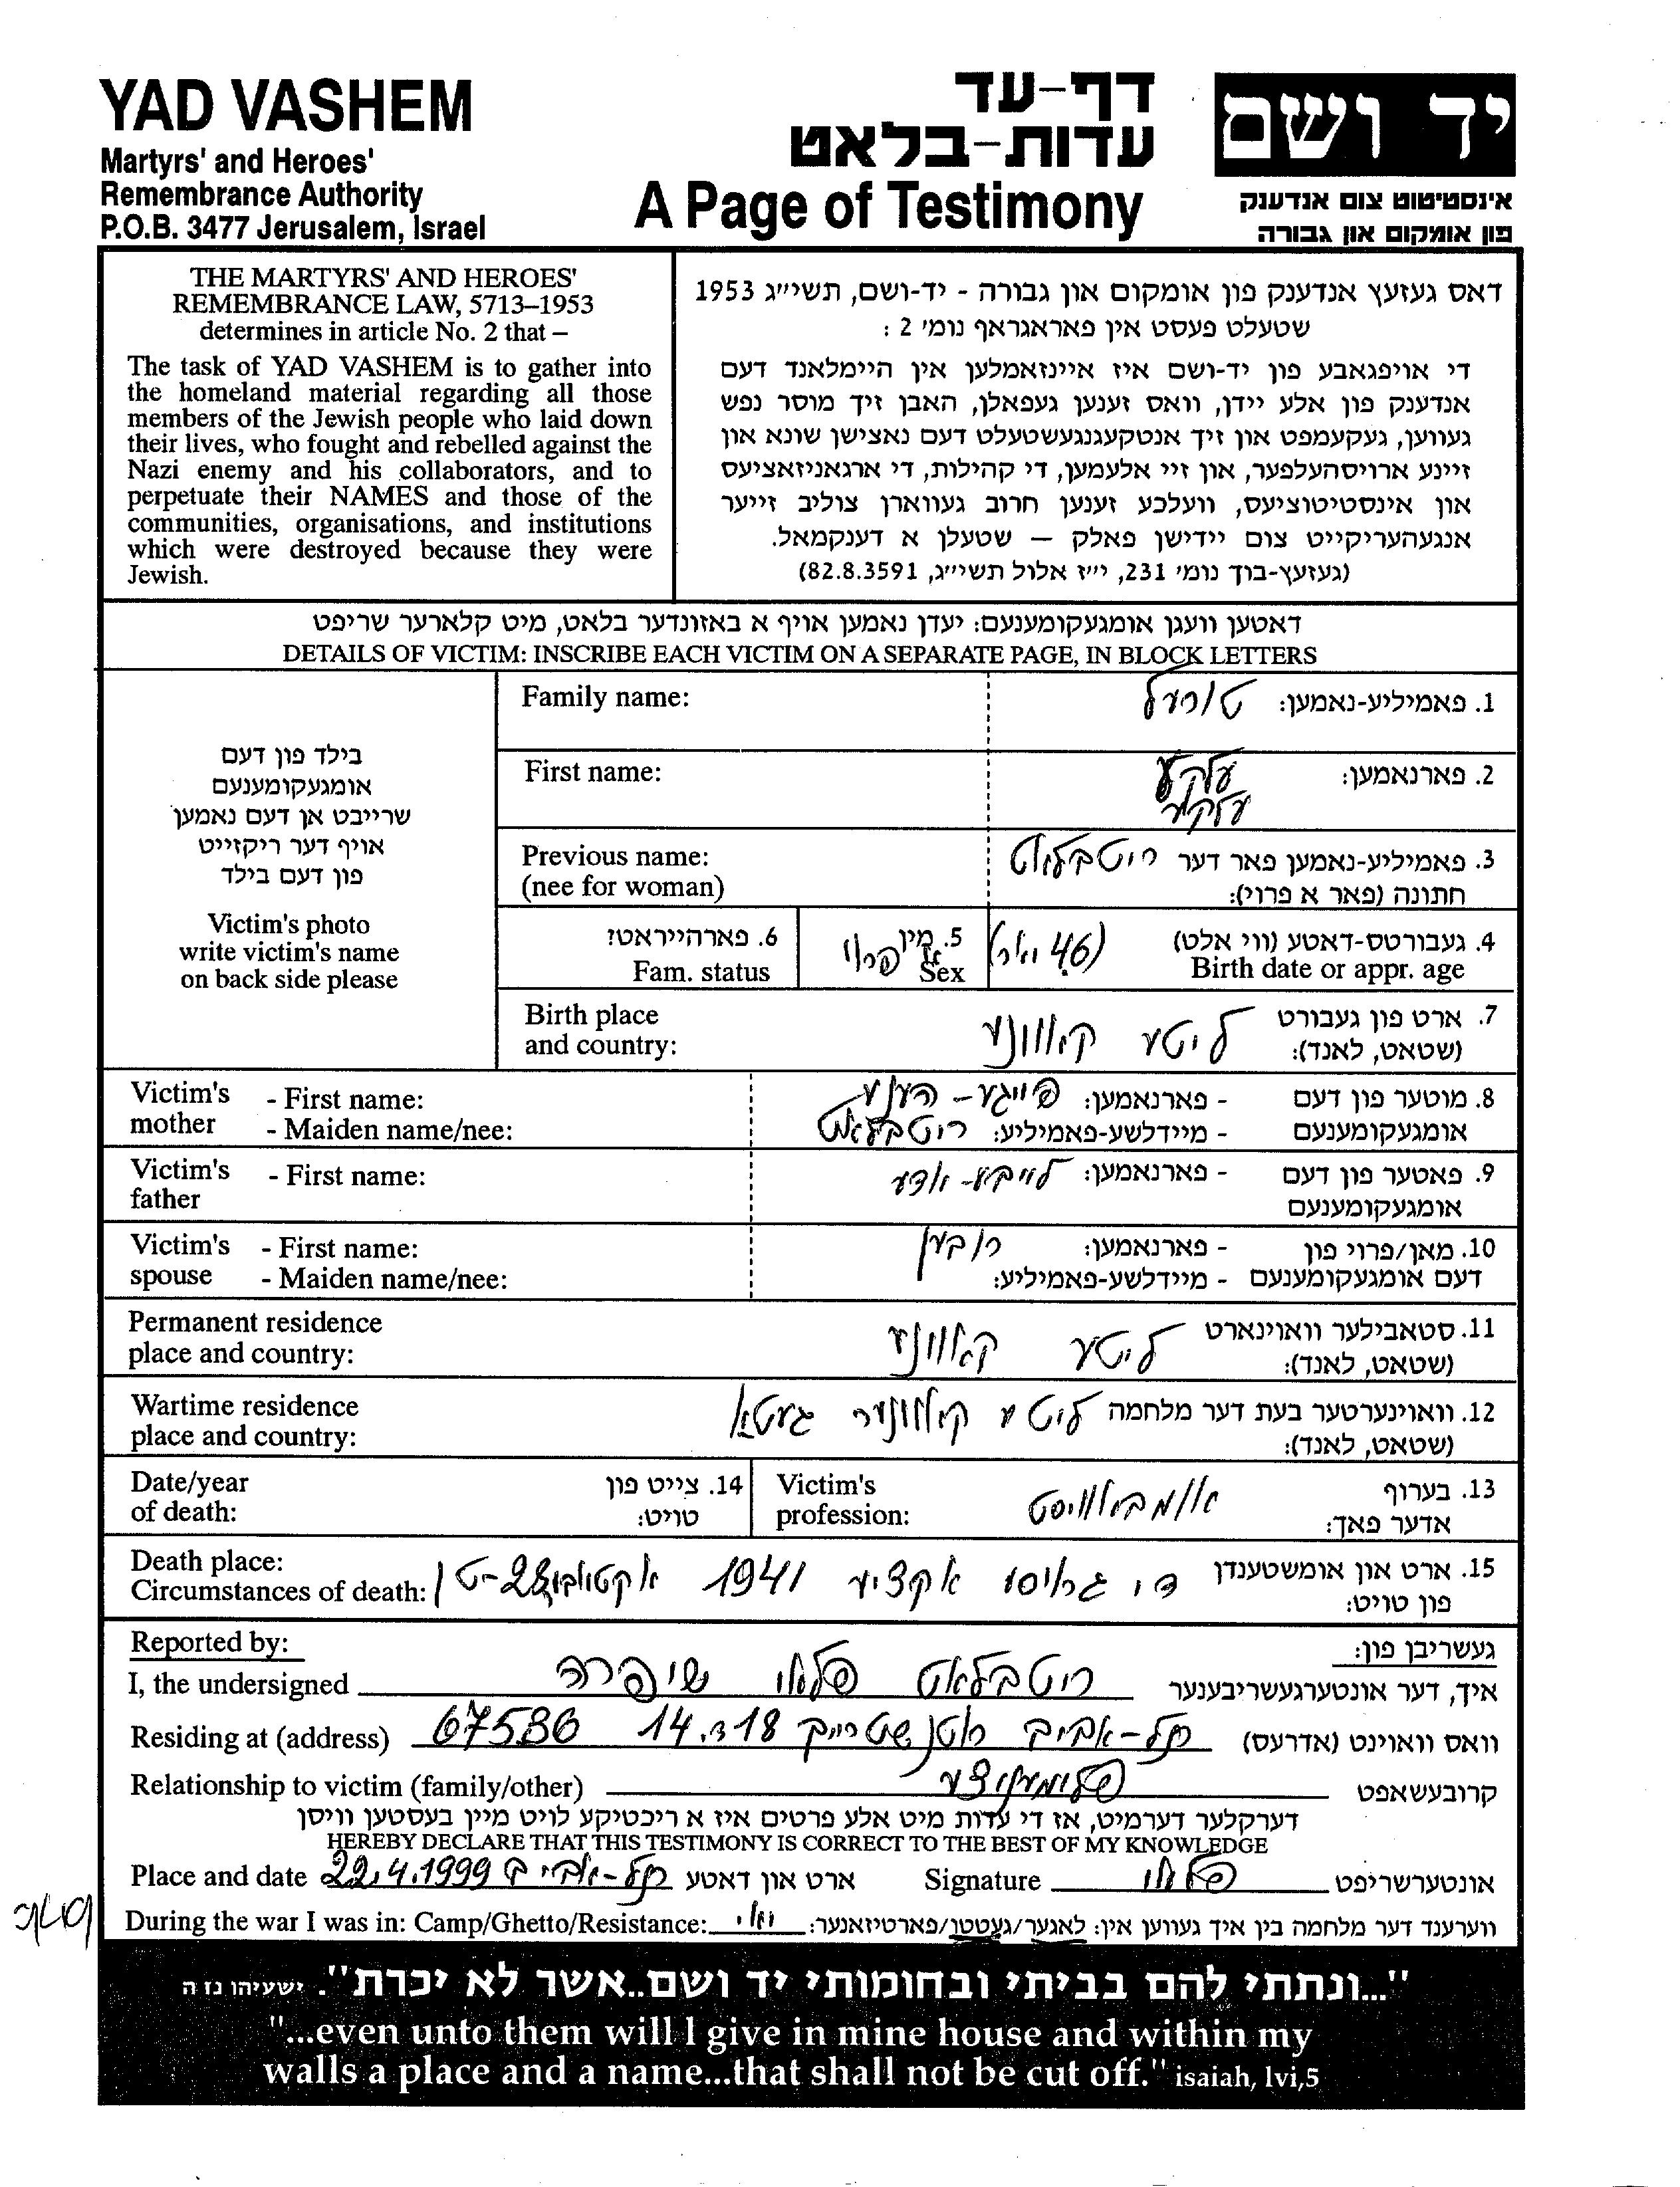 YAD VASHEM
Martyrs' and Heroes'
Remembrance Authority
P.O.B. 3477 Jerusalem, Israel
דף-עד
עדות-בלאט
A Page of Testimony
יד ושם
אינסטיטוט צום אנדענק
פון אומקום און גבורה
THE MARTYRS' AND HEROES'
REMEMBRANCE LAW, 5713–1953
determines in article No. 2 that –
The task of YAD VASHEM is to gather into
the homeland material regarding all those
members of the Jewish people who laid down
their lives, who fought and rebelled against the
Nazi enemy and his collaborators, and to
perpetuate their NAMES and those of the
communities, organisations, and institutions
which were destroyed because they were
Jewish.
דאס געזעץ אנדענק פון אומקום און גבורה - יד-ושם, תשי״ג 1953
שטעלט פעסט אין פאראגראף נומ׳ 2 :
די אויפגאבע פון יד-ושם איז איינזאמלען אין היימלאנד דעם
אנדענק פון אלע יידן, וואס זענען געפאלן, האבן זיך מוסר נפש
געווען, געקעמפט און זיך אנטקעגנגעשטעלט דעם נאצישן שונא און
זיינע ארויסהעלפער, און זיי אלעמען, די קהילות, די ארגאניזאציעס
און אינסטיטוציעס, וועלכע זענען חרוב געווארן צוליב זייער
אנגעהעריקייט צום יידישן פאלק — שטעלן א דענקמאל.
(געזעץ-בוך נומ׳ 231, י״ז אלול תשי״ג, 82.8.3591)
דאטען וועגן אומגעקומענעם: יעדן נאמען אויף א באזונדער בלאט, מיט קלארער שריפט
DETAILS OF VICTIM: INSCRIBE EACH VICTIM ON A SEPARATE PAGE, IN BLOCK LETTERS
בילד פון דעם
אומגעקומענעם
שרייבט אן דעם נאמען
אויף דער ריקזייט
פון דעם בילד
Victim's photo
write victim's name
on back side please
Family name:
1. פאמיליע-נאמען:
First name:
2. פארנאמען: עלקע
Previous name:
(nee for woman)
3. פאמיליע-נאמען פאר דער
חתונה (פאר א פרוי):
רוטבלאט
4. געבורטס-דאטע (ווי אלט)
Birth date or appr. age
(46 יאר)
5. מין
Sex
פרוי
6. פארהייראט?
Fam. status
Birth place
and country:
7. ארט פון געבורט
(שטאט, לאנד):
ליטע קאוונע
Victim's
mother
- First name:
- Maiden name/nee:
8. מוטער פון דעם
אומגעקומענעם
- פארנאמען: פייגע-העניע
- מיידלשע-פאמיליע: רוטבלאט
Victim's
father
- First name:
9. פאטער פון דעם
אומגעקומענעם
- פארנאמען: לייבע-
Victim's
spouse
- First name:
- Maiden name/nee:
10. מאן/פרוי פון
דעם אומגעקומענעם
- פארנאמען: ראובען
- מיידלשע-פאמיליע:
Permanent residence
place and country:
11. סטאבילער וואוינארט
(שטאט, לאנד):
ליטע קאוונע
Wartime residence
place and country:
12. וואוינערטער בעת דער מלחמה
(שטאט, לאנד):
ליטע קאוונער געטא
Date/year
of death:
14. צייט פון
טויט:
Victim's
profession:
13. בערוף
אדער פאך:
Death place:
Circumstances of death:
15. ארט און אומשטענדן
פון טויט:
די גרויסע אקציע 1941 אקטאבער 28-טן
Reported by:
געשריבן פון:
I, the undersigned
איך, דער אונטערגעשריבענער
רוטבלאט שיפרה
Residing at (address)
וואס וואוינט (אדרעס)
תל-אביב רוטנשטרייך 18 ד. 14 67536
Relationship to victim (family/other)
קרובעשאפט
פלימעניצע
דערקלער דערמיט, אז די עדות מיט אלע פרטים איז א ריכטיקע לויט מיין בעסטען וויסן
HEREBY DECLARE THAT THIS TESTIMONY IS CORRECT TO THE BEST OF MY KNOWLEDGE
Place and date
ארט און דאטע
תל-אביב 22.4.1999
Signature
אונטערשריפט
During the war I was in: Camp/Ghetto/Resistance:
ווערענד דער מלחמה בין איך געווען אין: לאגער/געטטו/פארטיזאנער: יא
"...ונתתי להם בביתי ובחומותי יד ושם..אשר לא יכרת". ישעיהו נז ה
"...even unto them will I give in mine house and within my
walls a place and a name...that shall not be cut off." isaiah, lvi,5